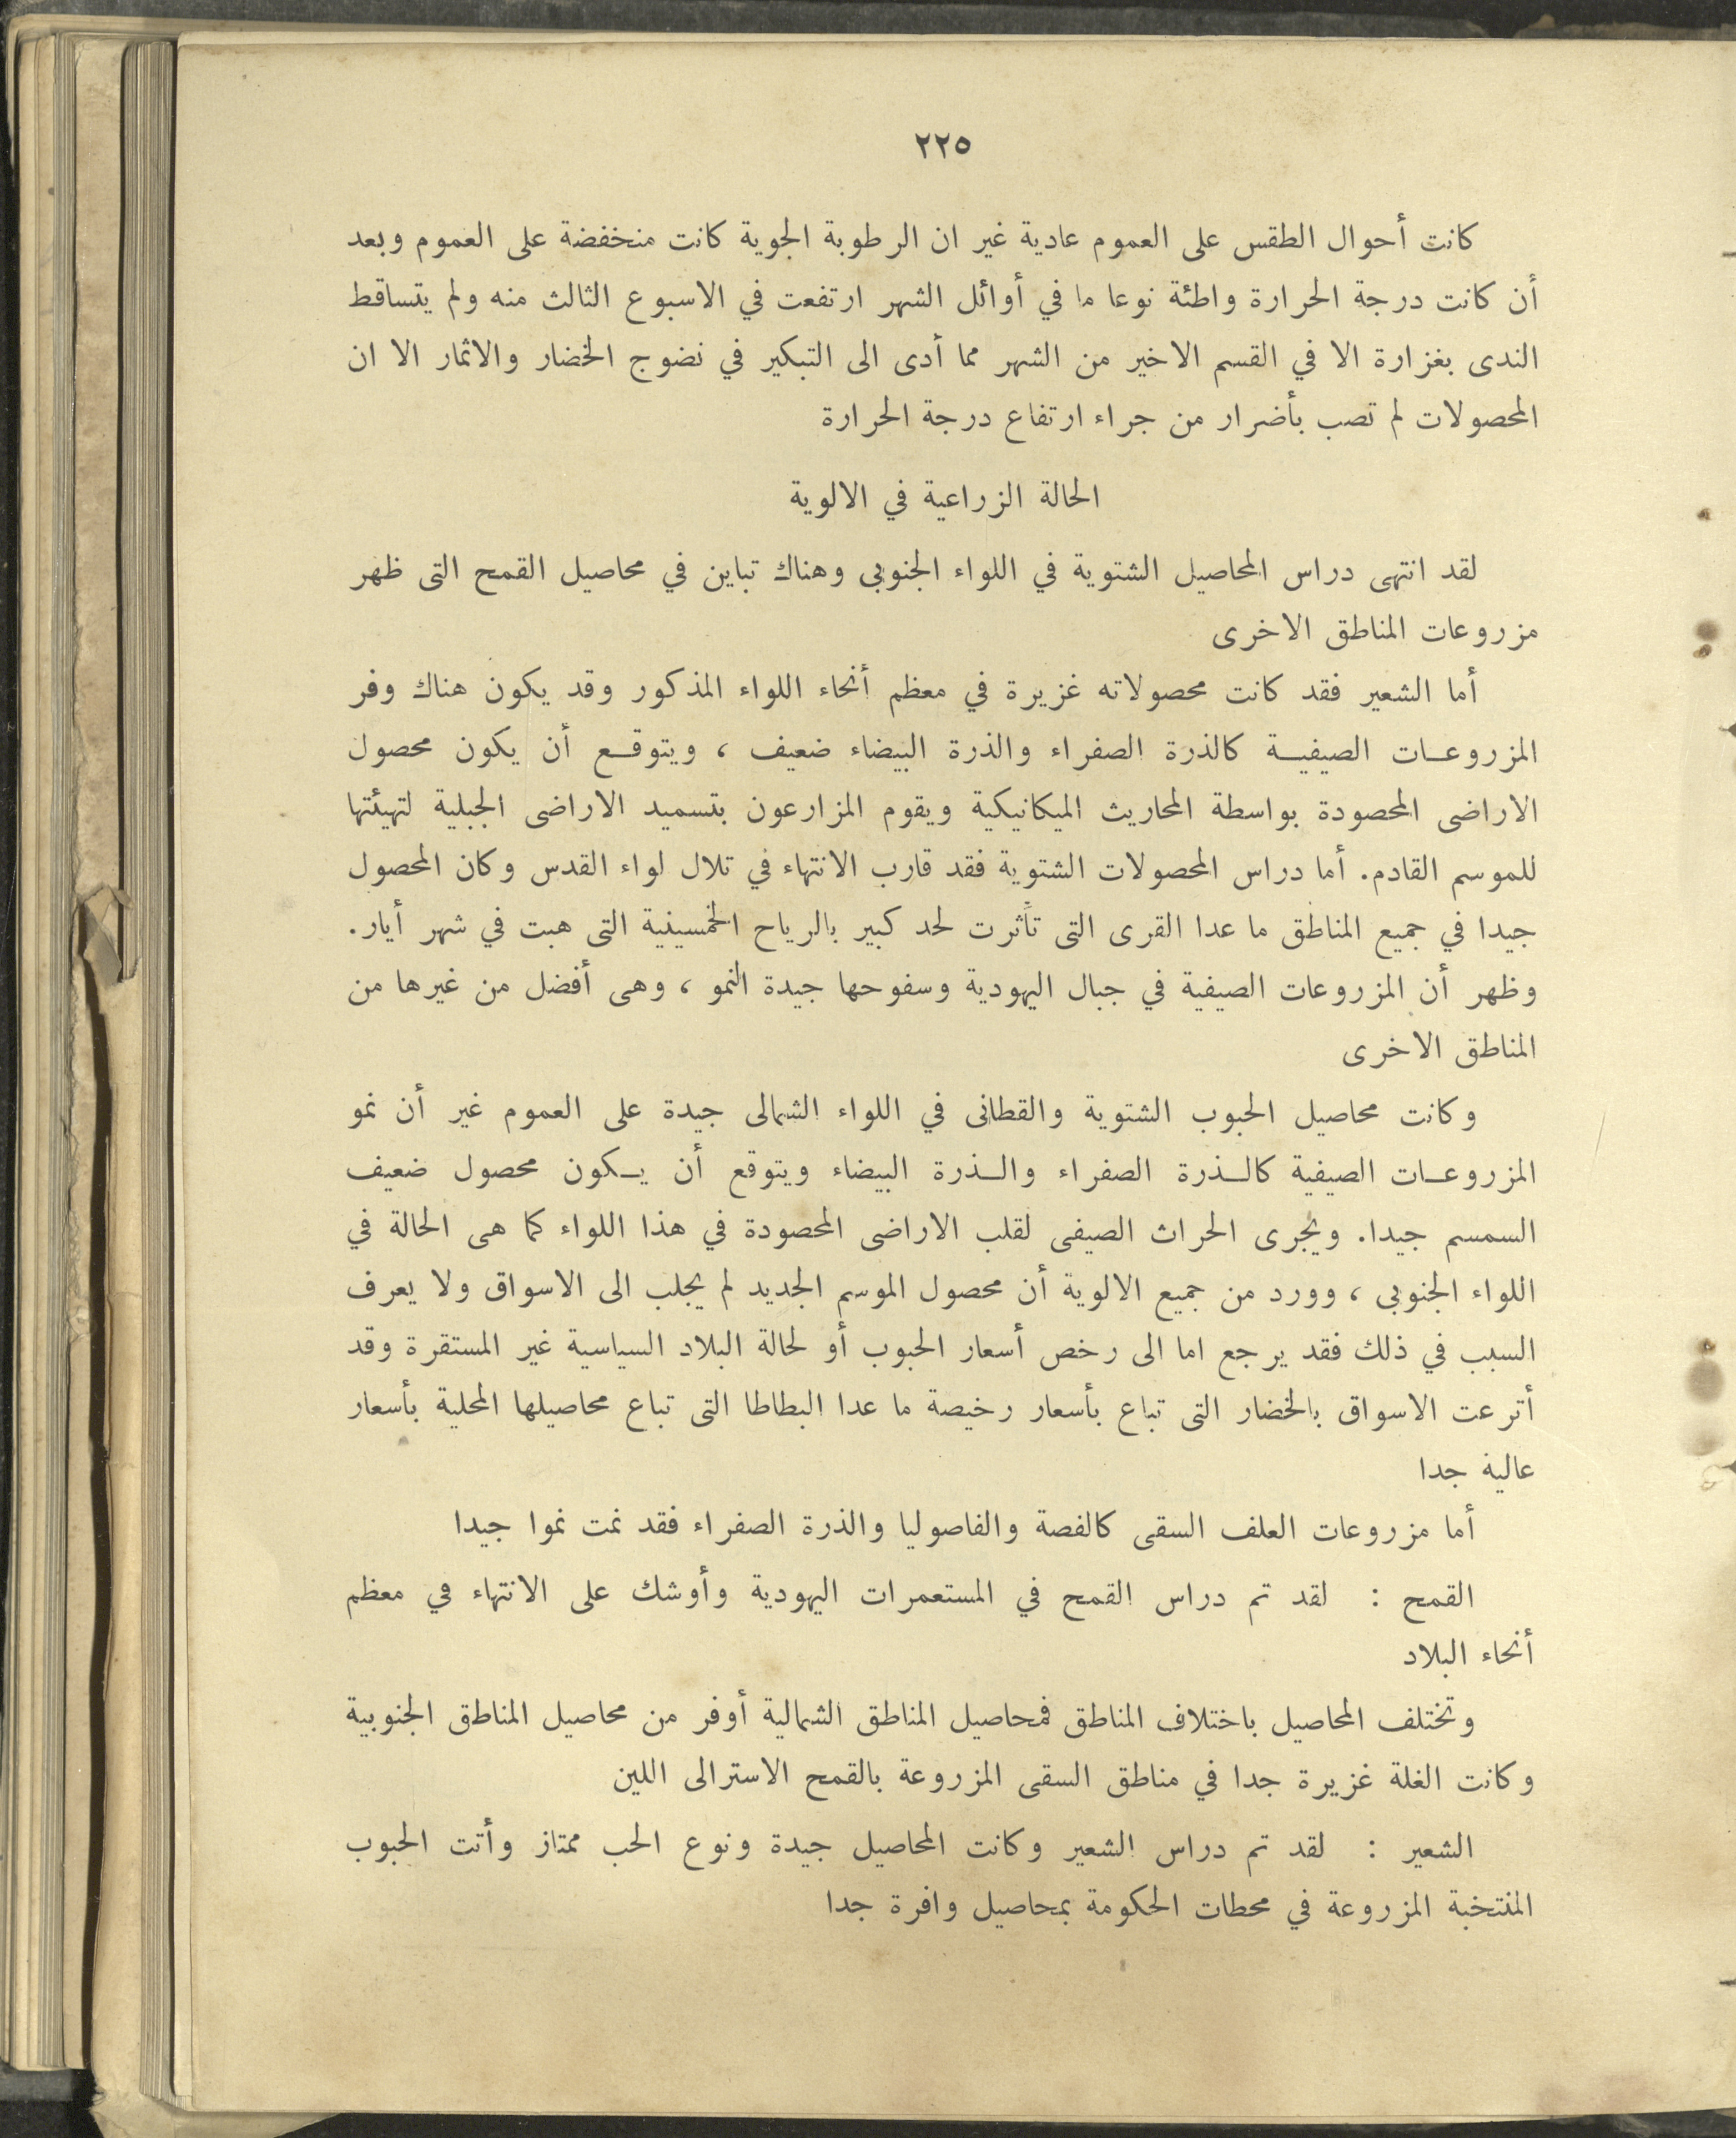 ٢٢٥
كانت أحوال الطقس على العموم عادية غير ان الرطوبة الجوية كانت منخفضة على العموم وبعد
أن كانت درجة الحرارة واطئة نوعا ما في أوائل الشهر ارتفعت في الاسبوع الثالث منه ولم يتساقط
الندى بغزارة الا في القسم الاخير من الشهر مما أدى الى التبكير في نضوج الخضار والاثمار الا ان
المحصولات لم تصب بأضرار من جراء ارتفاع درجة الحرارة
الحالة الزراعية في الالوية
لقد انتهى دراس المحاصيل الشتوية في اللواء الجنوبى وهناك تباين في محاصيل القمح التى ظهر
مزروعات المناطق الاخرى
أما الشعير فقد كانت محصولاته غزيرة في معظم أنحاء اللواء المذكور وقد يكون هناك وفر
المزروعات الصيفية كالذرة الصفراء والذرة البيضاء ضعيف ، ويتوقع أن يكون محصول
الاراضى المحصودة بواسطة المحاريث الميكانيكية ويقوم المزارعون بتسميد الاراضى الجبلية لتهيئتها
للموسم القادم. أما دراس المحصولات الشتوية فقد قارب الانتهاء في تلال لواء القدس وكان المحصول
جيدا في جميع المناطق ما عدا القرى التى تأثرت لحد كبير بالرياح الخمسينية التى هبت في شهر أيار.
وظهر أن المزروعات الصيفية في جبال اليهودية وسفوحها جيدة النمو ، وهى أفضل من غيرها من
المناطق الاخرى
وكانت محاصيل الحبوب الشتوية والقطانى في اللواء الشمالى جيدة على العموم غير أن نمو
المزروعات الصيفية كالذرة الصفراء والذرة البيضاء ويتوقع أن يكون محصول ضعيف
السمسم جيدا. ويجرى الحراث الصيفى لقلب الاراضى المحصودة في هذا اللواء كما هى الحالة في
اللواء الجنوبى ، وورد من جميع الالوية أن محصول الموسم الجديد لم يجلب الى الاسواق ولا يعرف
السبب في ذلك فقد يرجع اما الى رخص أسعار الحبوب أو لحالة البلاد السياسية غير المستقرة وقد
أترعت الاسواق بالخضار التى تباع بأسعار رخيصة ما عدا البطاطا التى تباع محاصيلها المحلية بأسعار
عالية جدا
أما مزروعات العلف السقى كالفصة والفاصوليا والذرة الصفراء فقد نمت نموا جيدا
القمح : لقد تم دراس القمح في المستعمرات اليهودية وأوشك على الانتهاء في معظم
أنحاء البلاد
وتختلف المحاصيل باختلاف المناطق فمحاصيل المناطق الشمالية أوفر من محاصيل المناطق الجنوبية
وكانت الغلة غزيرة جدا في مناطق السقى المزروعة بالقمح الاسترالى اللين
الشعير : لقد تم دراس الشعير وكانت المحاصيل جيدة ونوع الحب ممتاز وأتت الحبوب
المنتخبة المزروعة في محطات الحكومة بمحاصيل وافرة جدا